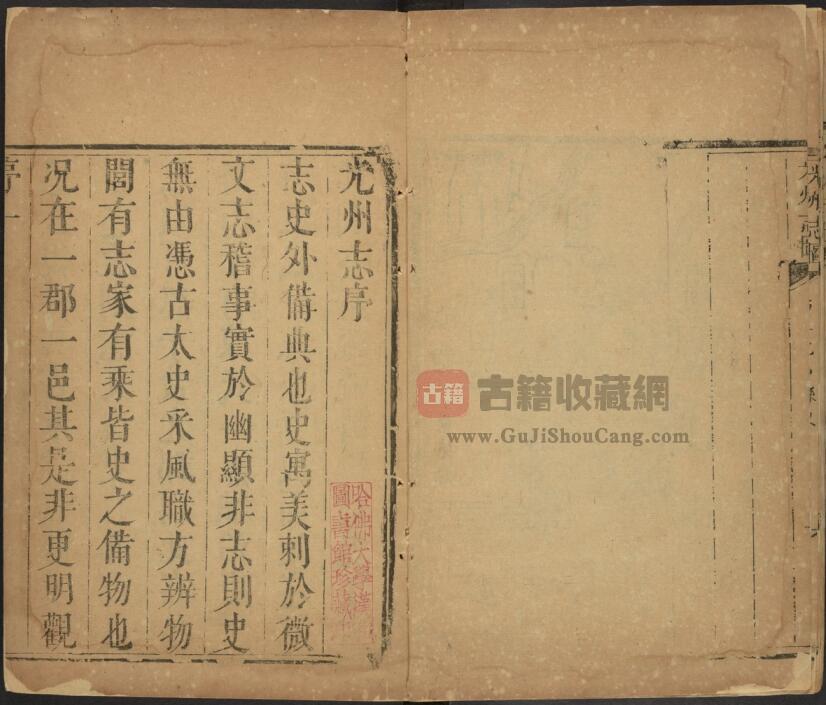 光州志序
志史外備典也史寓美刺於微
文志稽事實於幽顯非志則史
無由憑古太史采風職方辨物
閭有志家有乘皆史之備物也
况在一郡一邑其是非更明觀
序 一
哈佛大學漢
圖書館珍藏
古籍
古籍收藏網
www.GuJiShouCang.com